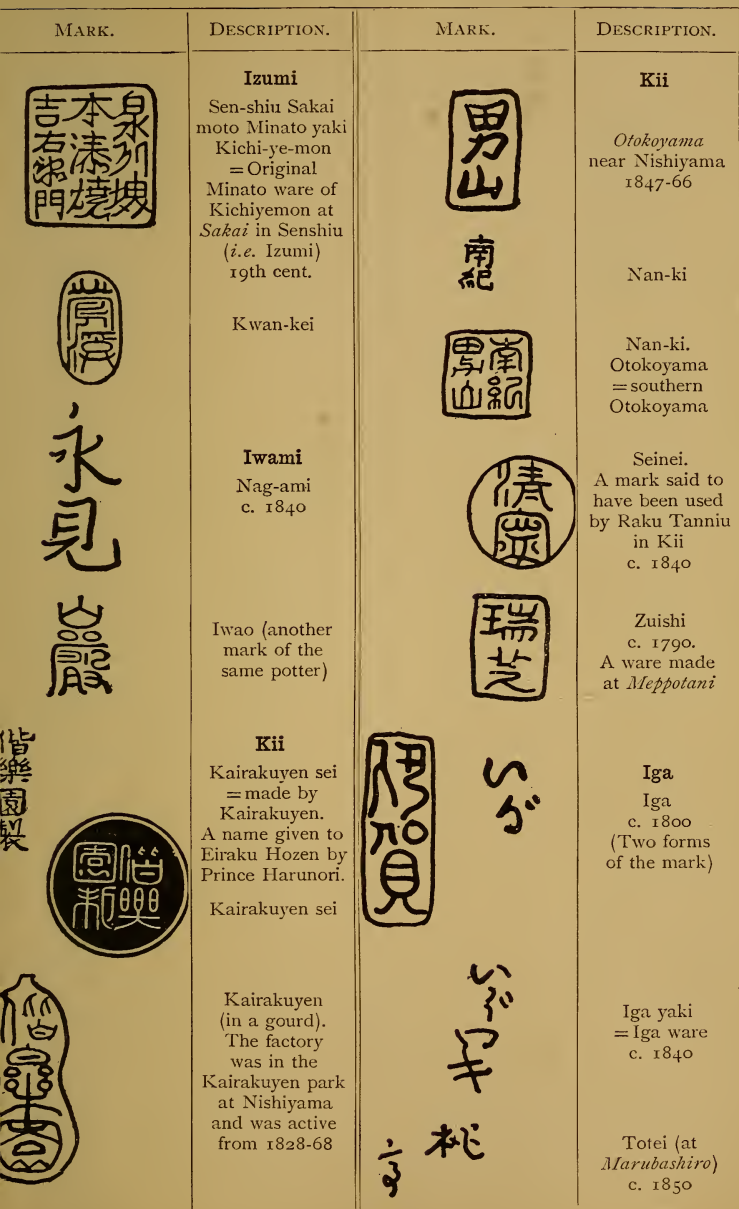 MARK.
DESCRIPTION.
泉州堺
本湊焼
吉右衛門
Izumi
Sen-shiu Sakai
moto Minato yaki
Kichi-ye-mon
= Original
Minato ware of
Kichiyemon at
Sakai in Senshiu
(i.e. Izumi)
19th cent.
Kwan-kei
永見
Iwami
Nag-ami
c. 1840
巖
Iwao (another
mark of the
same potter)
偕樂園製
Kii
Kairakuyen sei
= made by
Kairakuyen.
A name given to
Eiraku Hozen by
Prince Harunori.
偕樂
園製
Kairakuyen sei
偕樂園
Kairakuyen
(in a gourd).
The factory
was in the
Kairakuyen park
at Nishiyama
and was active
from 1828-68
MARK.
DESCRIPTION.
Kii
男山
Otokoyama
near Nishiyama
1847-66
南紀
Nan-ki
南紀
男山
Nan-ki.
Otokoyama
= southern
Otokoyama
清寧
Seinei.
A mark said to
have been used
by Raku Tanniu
in Kii
c. 1840
瑞芝
Zuishi
c. 1790.
A ware made
at Meppotani
伊賀
いが
Iga
Iga
c. 1800
(Two forms
of the mark)
いが
ヤキ
Iga yaki
= Iga ware
c. 1840
桃
Totei (at
Marubashiro)
c. 1850